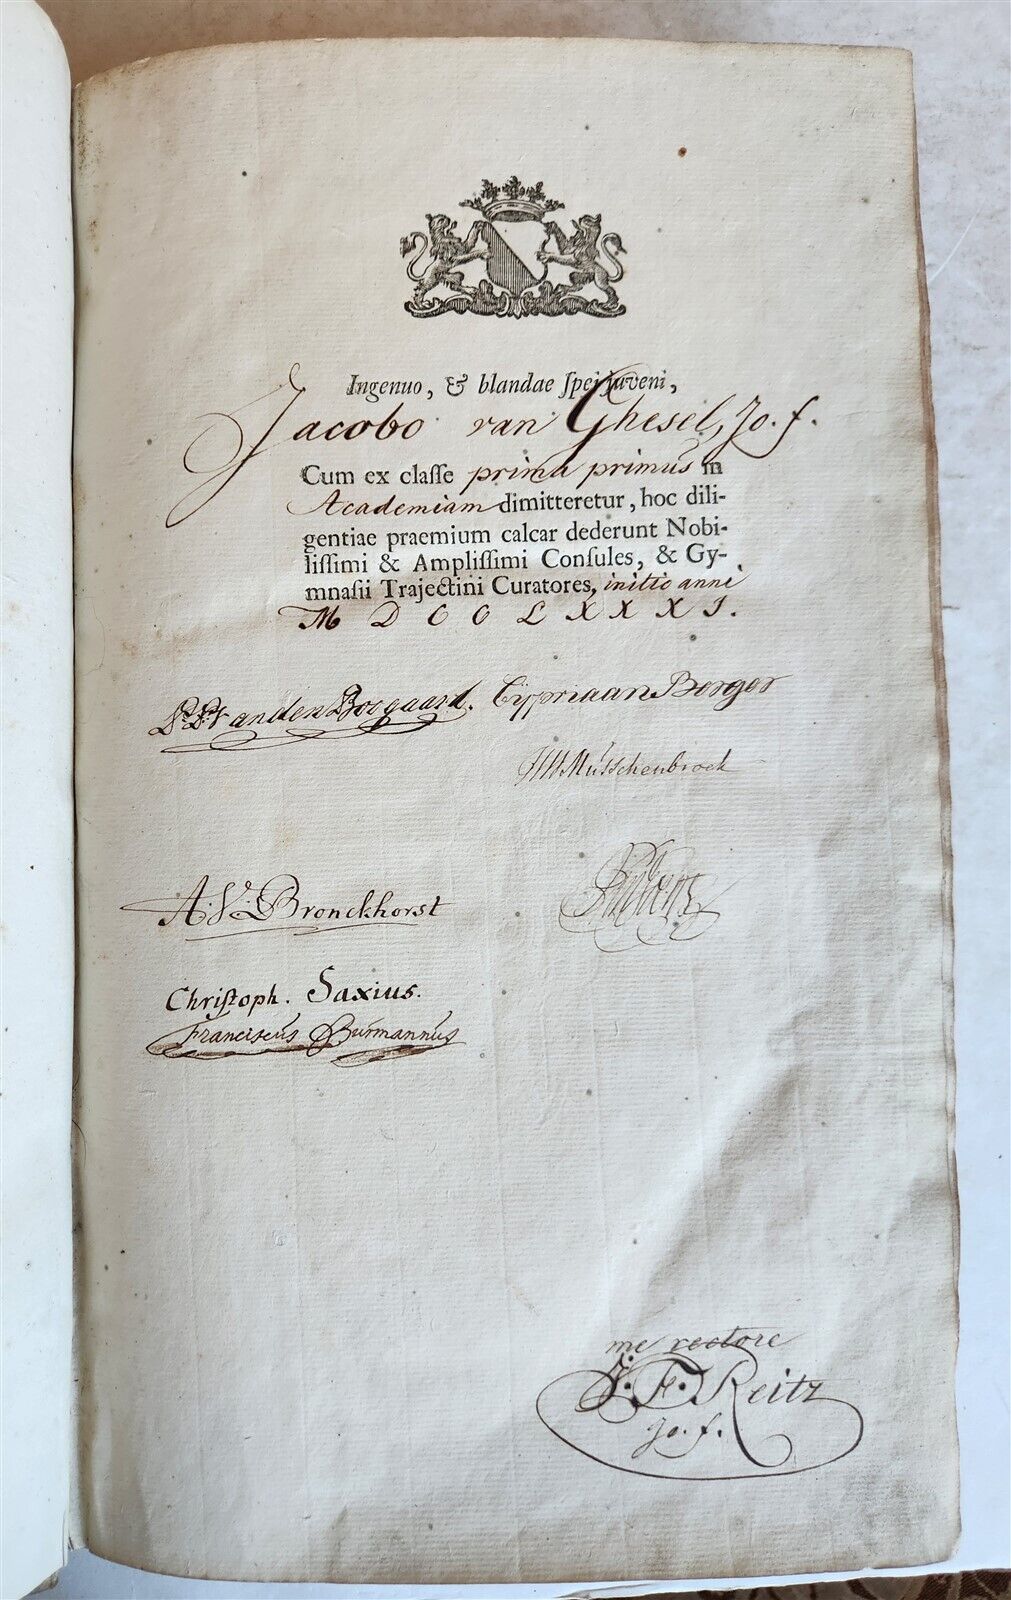 Ingenuo, & blandae ſpei juveni,
Jacobo van Ghesel, Jo. f.
Cum ex claſſe prima primus in
Academiam dimitteretur, hoc dili-
gentiae praemium calcar dederunt Nobi-
liſſimi & Ampliſſimi Conſules, & Gy-
mnaſii Trajectini Curatores, initio anni
M D C C L X X X I.
P. P. Van den Bosgaard. Cypriaan Berger
Musschenbroek
A. V. Bronckhorst
Chriſtoph. Saxius.
Franciscus Burmannus
me rectore
J. F. Reitz
Jo. f.